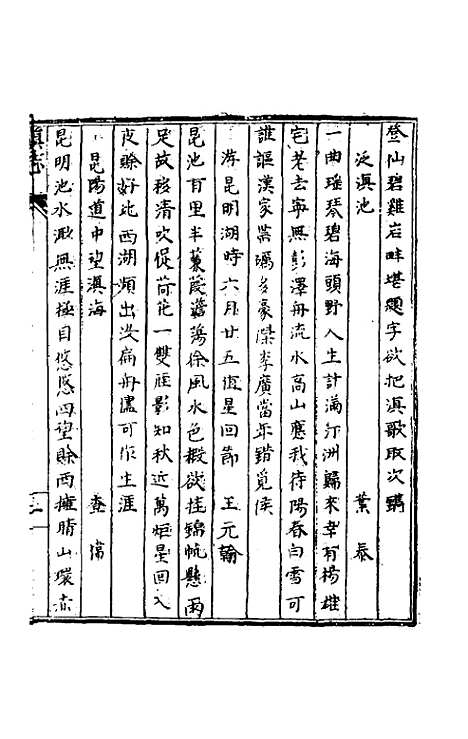 登仙碧雞岩畔堪題字欲把滇歌取次鐫
泛滇池 葉泰
一曲瑤琴碧海頭野人生計滿汀洲歸來幸有楊雄
宅老去寧無彭澤舟流水高山應我待陽春白雪可
誰謳漢家帶礪多豪傑李廣當年錯覓侯
游昆明湖時六月廿五恆星回節 王元翰
昆池百里半蒹葭澹蕩徐風水色椴欲挂錦帆懸雨
足故移清吹促荷花一雙粧影知秋近萬炬星回入
夜賒好比西湖頻出沒扁舟儘可作生涯
昆陽道中望滇海
昆明池水漱無涯極目悠悠四望賒西擁晴山環赤